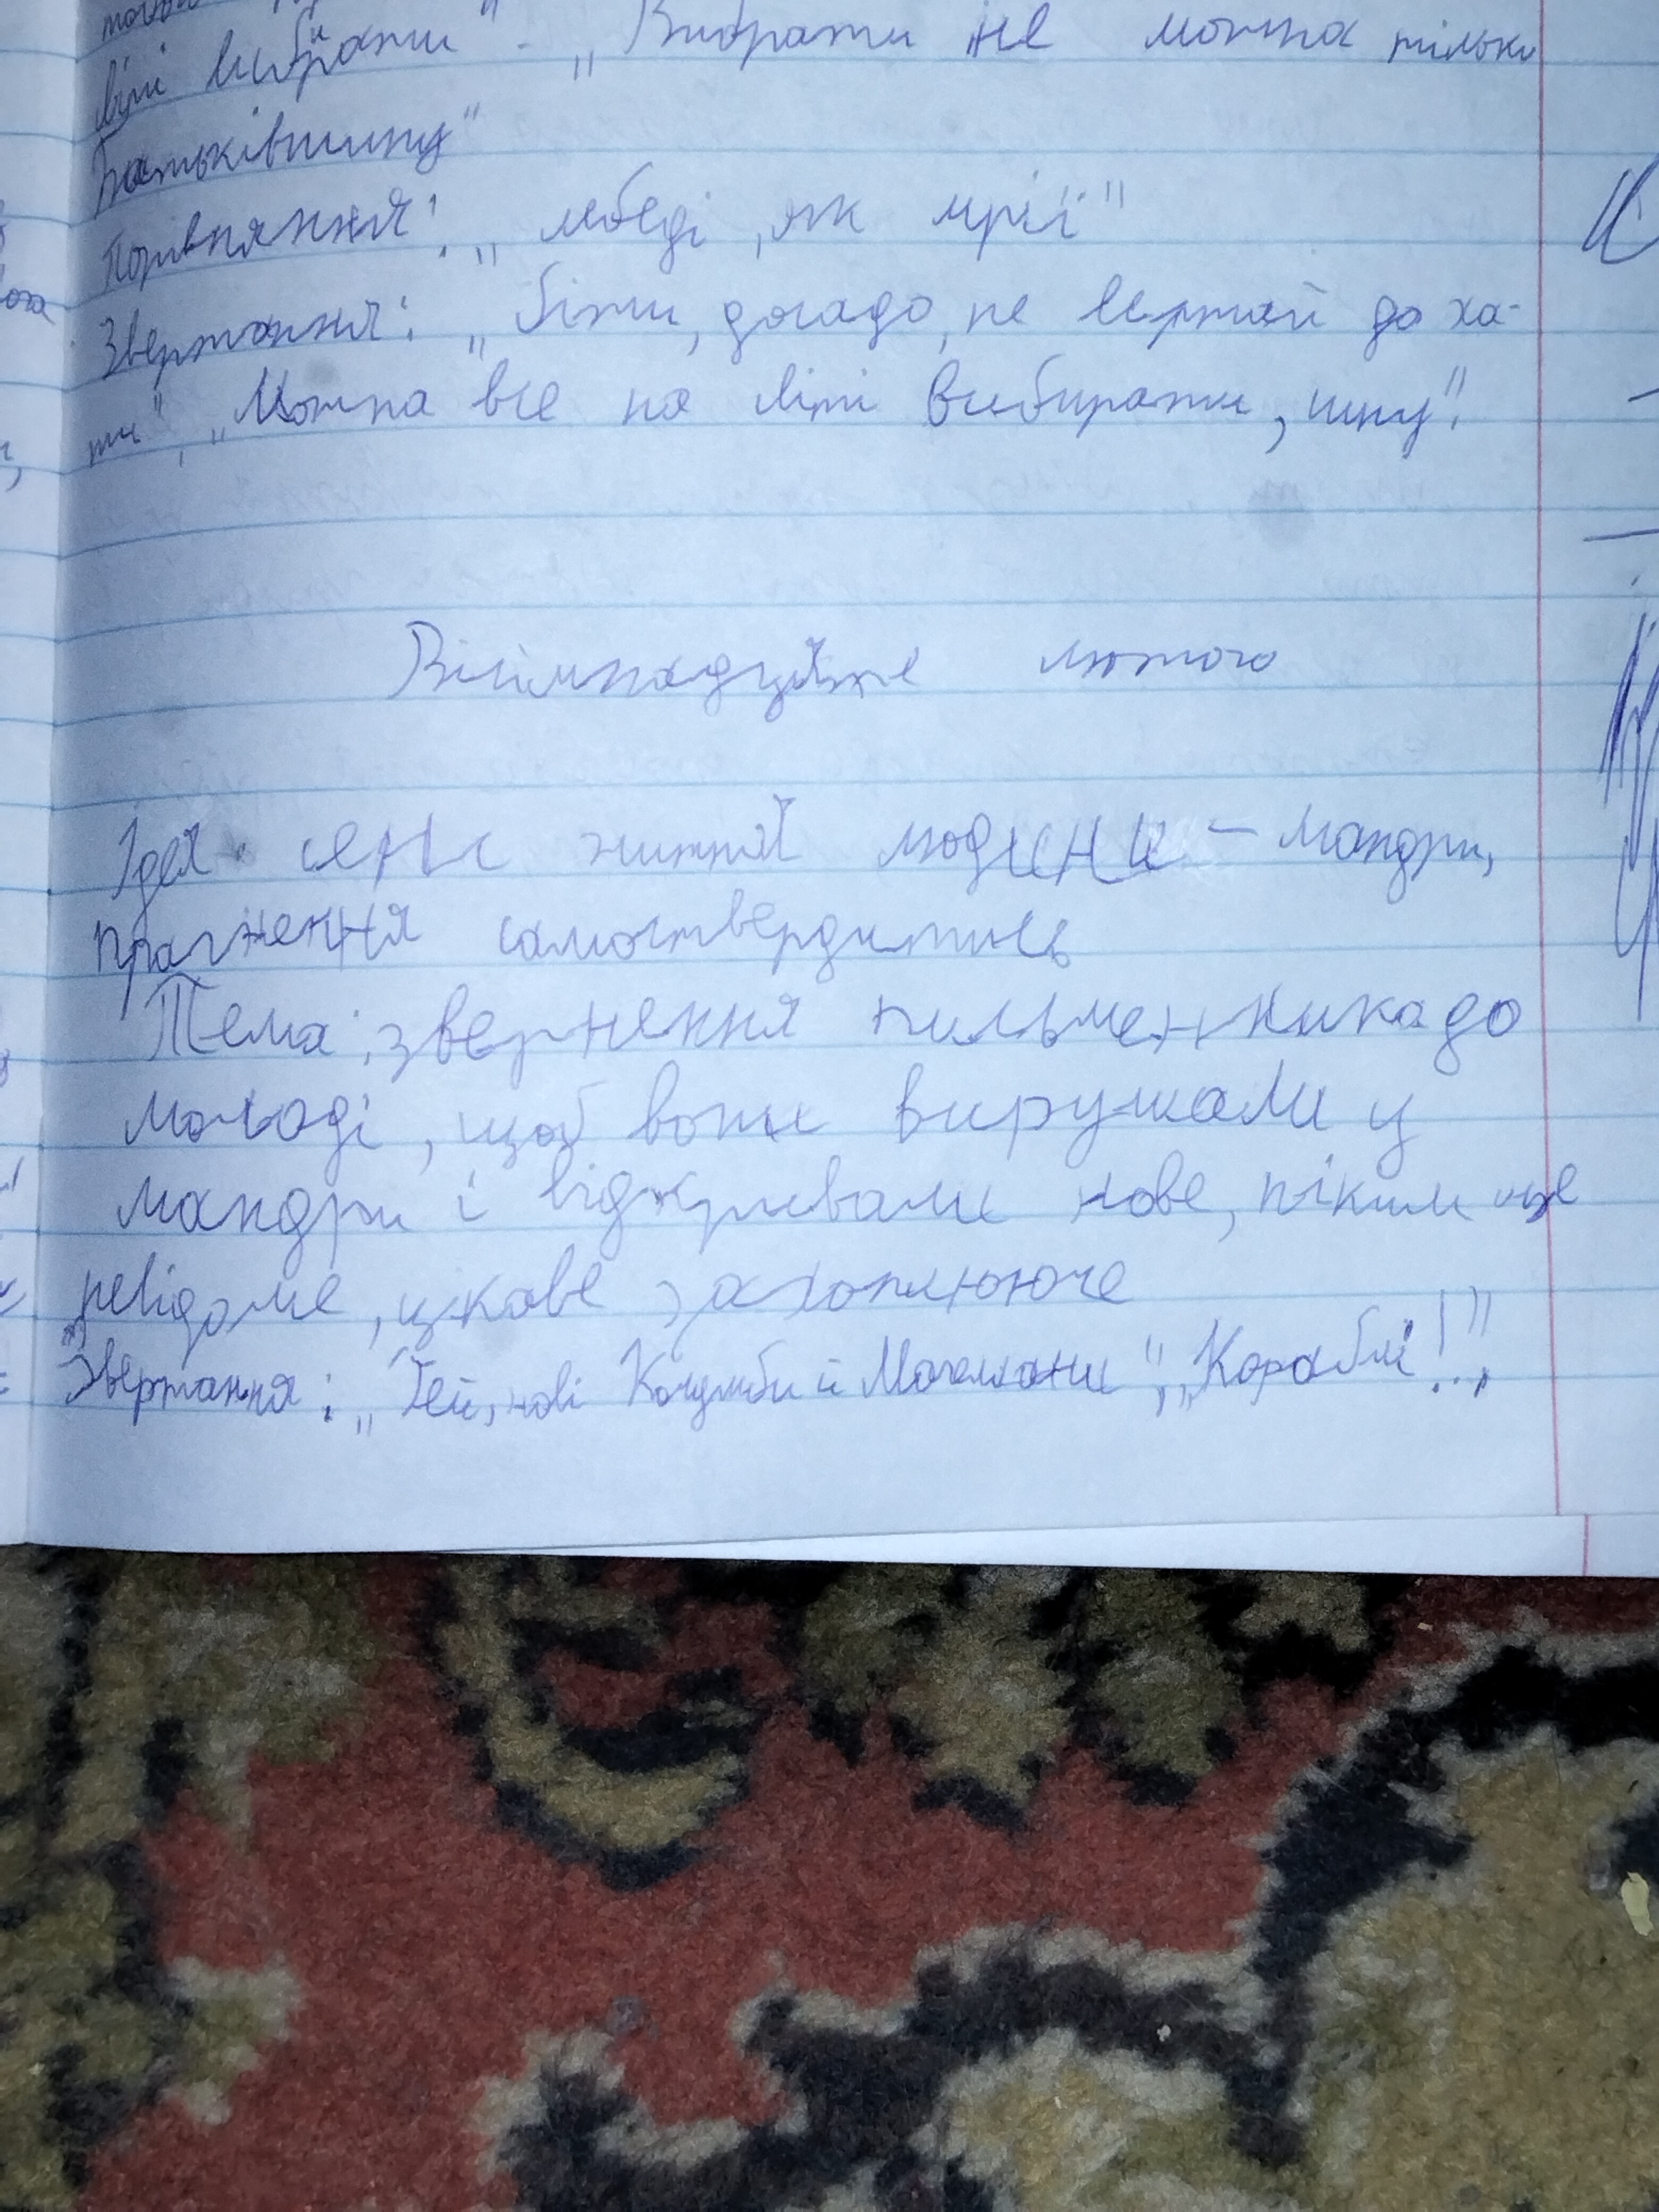 світі вибрати". „Вибрати не можна тільки
Батьківщину"
Порівняння: „лебеді, як мрії"
Звертання: „біди, досадо, не вертай до ха-
ти", „Можна все на світі вибирати, сину".
Вісімнадцяте лютого
Ідея: сенс життя людини – мандри,
прагнення самоствердитись
Тема: звернення письменника до
молоді, щоб вони вирушали у
мандри і відкривали нове, ніким ще
невідоме, цікаве захоплююче
Звертання: „Гей, нові Колумби й Магеллани", „Кораблі!..,"